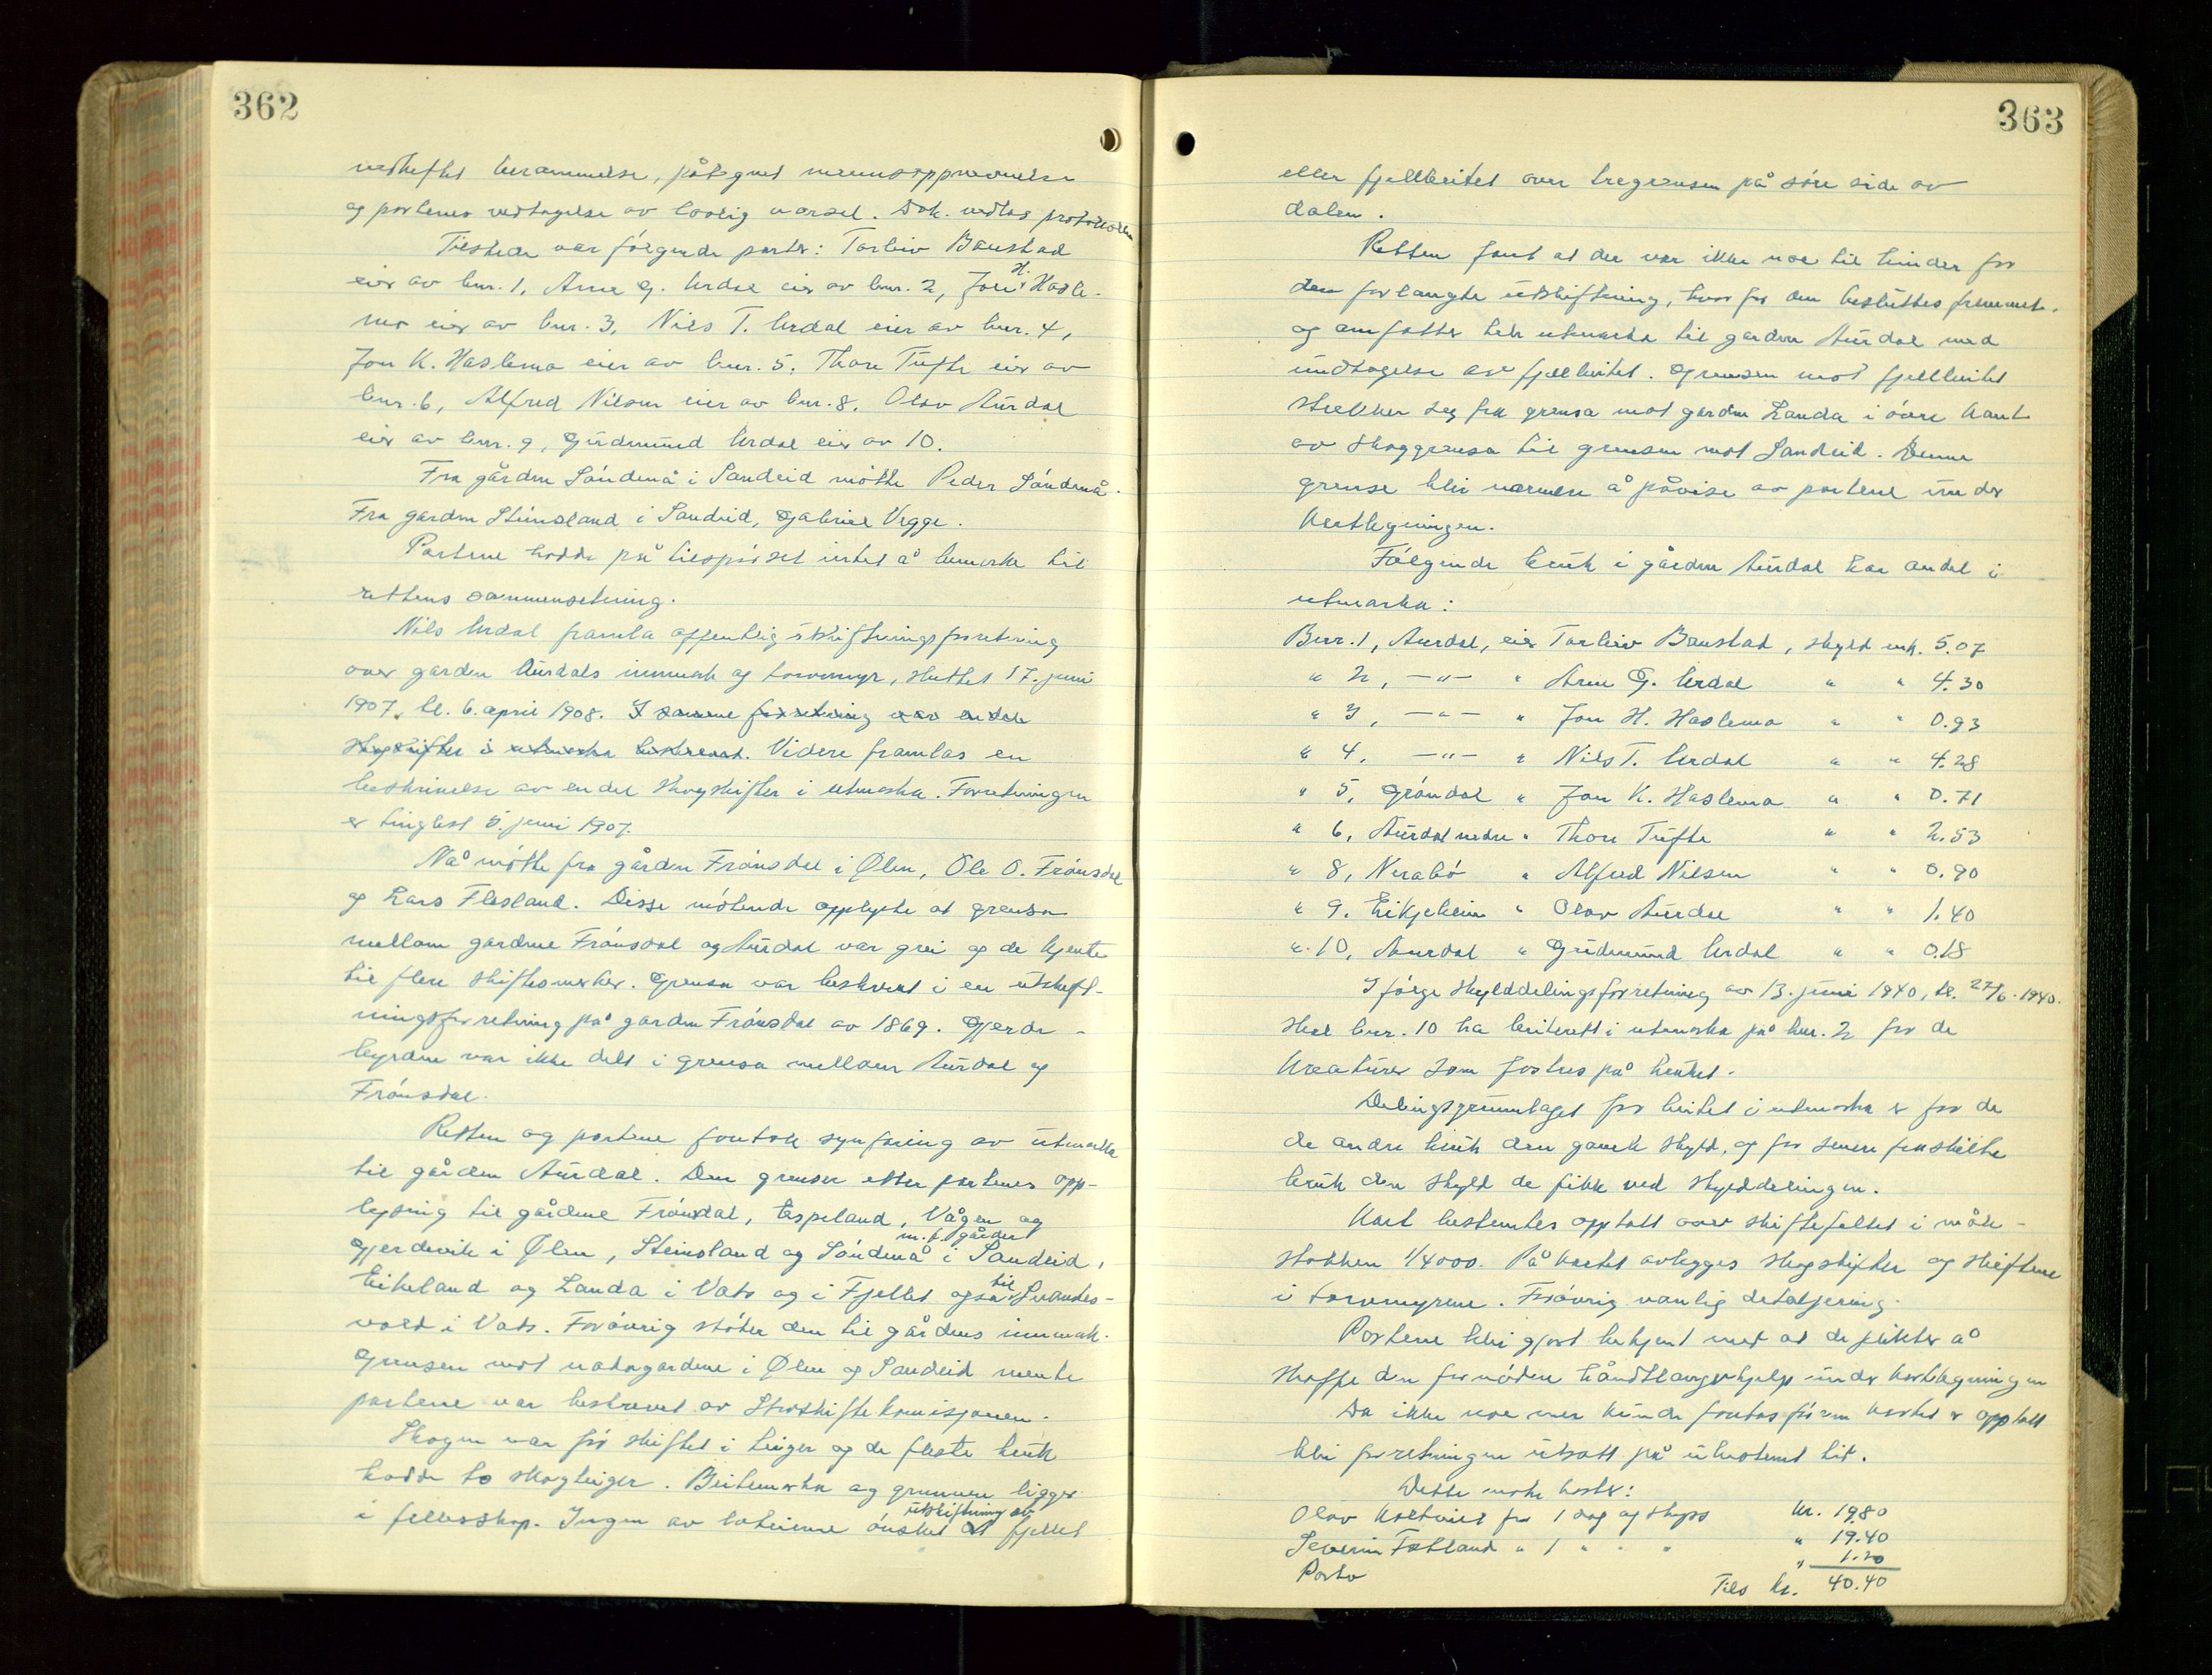 362
vedheftet berammelse, påtegnet mannsoppnevnelse
og partenes vedtagelse av lovlig varsel. Dok. vedlas protokollen
Tilstede var følgende parter: Torleiv Baustad
eier av bnr. 1, Arne G. Urdal eier av bnr. 2, Jon H. Hasle-
mo eier av bnr. 3, Nils T. Urdal eier av bnr. 4,
Jon K. Haslemo eier av bnr. 5. Thore Tufte eier av
bnr. 6, Alfred Nilsen eier av bnr. 8. Olav Aurdal
eier av bnr. 9, Gudmund Urdal eier av 10.
Fra gården Søndenå i Sandeid møtte Peder Søndenå.
Fra garden Steinsland i Sandeid, Gabriel Vegge.
Partene hadde på tilspørsel intet å bemerke til
rettens sammensetning.
Nils Urdal framla offentlig utskiftningsforretning
over garden Aurdals innmark og torvmyr, sluttet 17. juni
1907, tl. 6. april 1908. I samme forretning var endel
skogskifter i utmarka beskrevet. Videre framlas en
beskrivelse av endel skogskifter i utmarka. Forretningen
er tinglest 5. juni 1907.
Nå møtte fra gården Frønsdal i Ølen, Ole O. Frønsdal
og Lars Flesland. Disse møtende opplyste at grensa
mellom gardene Frønsdal og Aurdal var grei og de kjente
til flere skiftesmerker. Grensa var beskrevet i en utskift-
ningsforretning på garden Frønsdal av 1869. Gjerde-
byrden var ikke delt i grensa mellom Aurdal og
Frønsdal.
Retten og partene foretok synfaring av utmarka
til gården Aurdal. Den grenser etter partenes opp-
lysning til gårdene Frønsdal, Espeland, Vågen og
Gjerdevik i Ølen, Steinsland og Søndenå m. f. gårder i Sandeid,
Eikeland og Landa i Vats og i Fjellet også til Svandes-
vold i Vats. Forøvrig støter den til gårdens innmark.
Grensen mot nabogardene i Ølen og Sandeid mente
partene var beskrevet av Storskiftekomisjonen.
Skogen var før skiftet i teiger og de fleste bruk
hadde to skogteiger. Beitemarka og grunnen ligger
i fellesskap. Ingen av lodeierne ønsket utskiftning av fjellet
363
eller fjellbeitet over tregrensen på søre side av
dalen.
Retten fant at der var ikke noe til hinder for
den forlangte utskiftning, hvorfor den besluttes fremmet.
og omfatter hele utmarka til garden Aurdal med
undtagelse av fjellbeitet. Grensen mot fjellbeitet
strekker seg fra grensa mot garden Landa i øvre kant
av skoggrensa til grensen mot Sandeid. Denne
grense blir nærmere å påvise av partene under
kartlegningen.
Følgende bruk i gården Aurdal har andel i
utmarka:
Bnr. 1, Aurdal, eier Torleiv Baustad, skyld mk. 5.07
" 2, —"— " Arne G. Urdal " " 4.30
" 3, —"— " Jon H. Haslemo " " 0.93
" 4, —"— " Nils T. Urdal " " 4.28
" 5, Grøndal " Jon K. Haslemo " " 0.71
" 6, Aurdal nedre " Thore Tufte " " 2.53
" 8, Nerabø " Alfred Nilsen " " 0.90
" 9, Eikjeheim " Olav Aurdal " " 1.40
" 10, Aurdal " Gudmund Urdal " " 0.18
Ifølge skylddelingsforretning av 13. juni 1940, tl. 27/6. 1940.
skal bnr. 10 ha beiterett i utmarka på bnr. 2 for de
kreaturer som fostres på bruket.
Delingsgrunnlaget for beitet i utmarka er for de
de andre bruk den gamle skyld, og for senere fraskilte
bruk den skyld de fikk ved skylddelingen.
Kart bestemtes opptatt over skiftefeltet i måle-
stokken 1/4000. På kartet avlegges skogskifter og skiftene
i torvmyrene. Forøvrig vanlig detaljering.
Partene blei gjort bekjent med at de plikter å
skaffe den fornødne håndtlangerhjelp under kartlegningen
Da ikke noe mer kunde foretas før enn kartet er opptatt
blei forretningen utsatt på ubestemt tid.
Dette møte koster:
Olav Kaltveit for 1 dag og skyss kr. 19.80
Severin Fatland " 1 " " " " 19.40
Porto " 1.20
Tils kr. 40.40